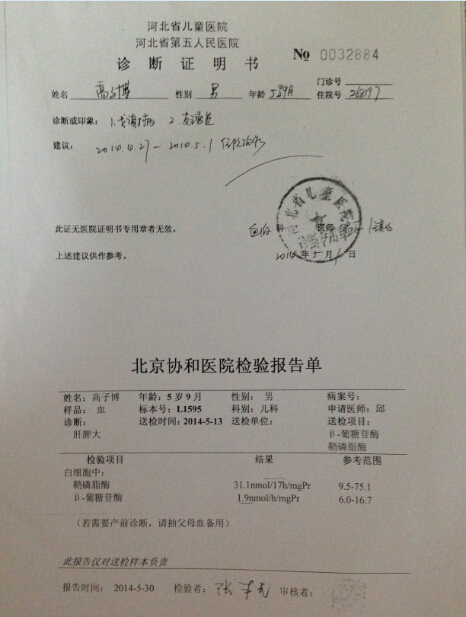 河北省儿童医院
河北省第五人民医院
诊断证明书 No 0032884
门诊号
姓名 高子博 性别 男 年龄 5岁9月 住院号
诊断或印象:1.戈谢病 2.
建议:2014.4.27-2014.5.1 住院治疗
河北省儿童医院
此证无医院证明书专用章者无效。
上述建议供作参考。 2014年5月1日
北京协和医院检验报告单
姓名:高子博 年龄:5岁9月 性别:男 病案号:
样品:血 标本号:L1595 科别:儿科 申请医师:邱
诊断: 送检时间:2014-5-13 送检单位: 送检项目:
肝脾大 β-葡糖苷酶
鞘磷脂酶
检验项目 结果 参考范围
白细胞中:
鞘磷脂酶 31.1nmol/17h/mgPr 9.5-75.1
β-葡糖苷酶 1.9nmol/h/mgPr 6.0-16.7
(若需要产前诊断,请抽父母血备用)
此报告仅对送检样本负责
报告时间:2014-5-30 检验者:张 审核者: